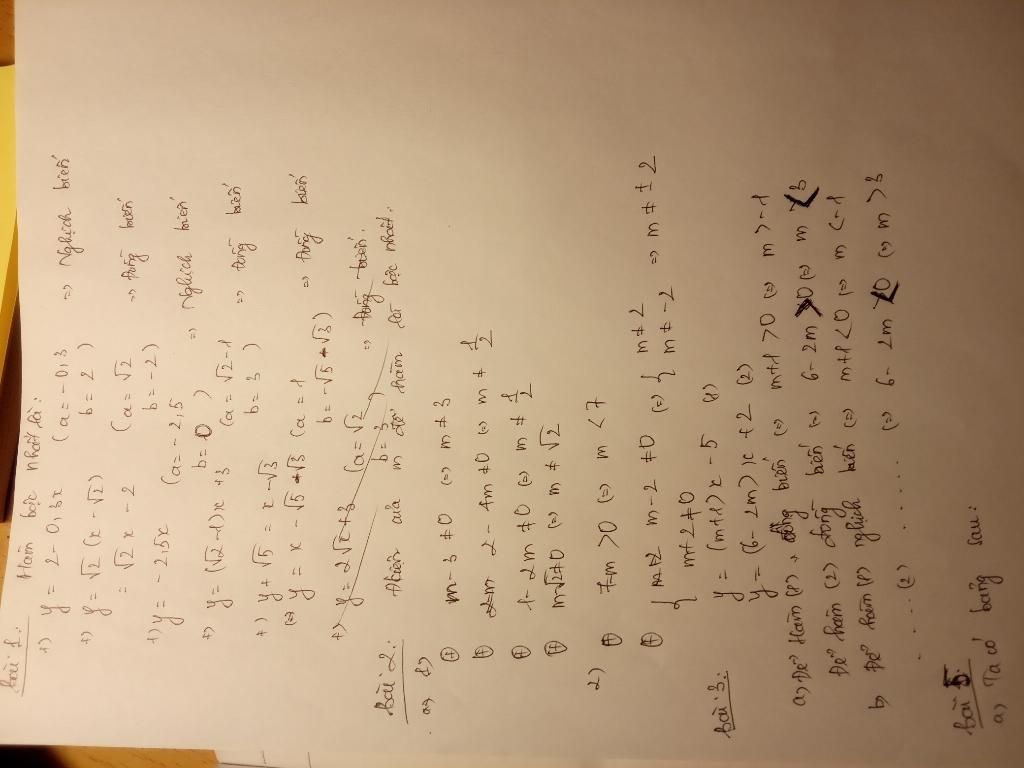 Bài 1: Hàm bậc nhất là:
+) y = 2 - 0,3x (a = -0,3 b = 2) => Nghịch biến
+) y = √2 (x - √2)
= √2 x - 2 (a = √2 b = -2) => Đồng biến
+) y = -2,5x (a = -2,5 b = 0) => Nghịch biến
+) y = (√2 - 1)x + 3 (a = √2 - 1 b = 3) => đồng biến
+) y + √5 = x - √3
(=) y = x - √5 - √3 (a = 1 b = -√5 - √3) => đồng biến
+) y = 2√x + 3 (a = √2 b = 3 => đồng biến.
Bài 2: của m để hàm là bậc nhất:
a) 1)
⊕ m - 3 ≠ 0 (=) m ≠ 3
⊕ 2 - 4m ≠ 0 (=) m ≠ 1/2
⊕ 1 - 2m ≠ 0 (=) m ≠ 1/2
⊕ m - √2 ≠ 0 (=) m ≠ √2
2)
⊕ 7 - m > 0 (=) m < 7
⊕ { m - 2 ≠ 0 (=) { m ≠ 2 => m ≠ ± 2
m + 2 ≠ 0 m ≠ -2
Bài 3: y = (m+1)x - 5 (1)
y = (6 - 2m)x + 2 (2)
a) Để hàm (1) đồng biến (=) m+1 > 0 (=) m > -1
Để hàm (2) đồng biến (=) 6 - 2m > 0 (=) m < 3
b) Để hàm (1) nghịch biến (=) m+1 < 0 (=) m < -1
. . . . . (2) . . . . . (=) 6 - 2m < 0 (=) m > 3
Bài 5:
a) Ta có bảng sau: